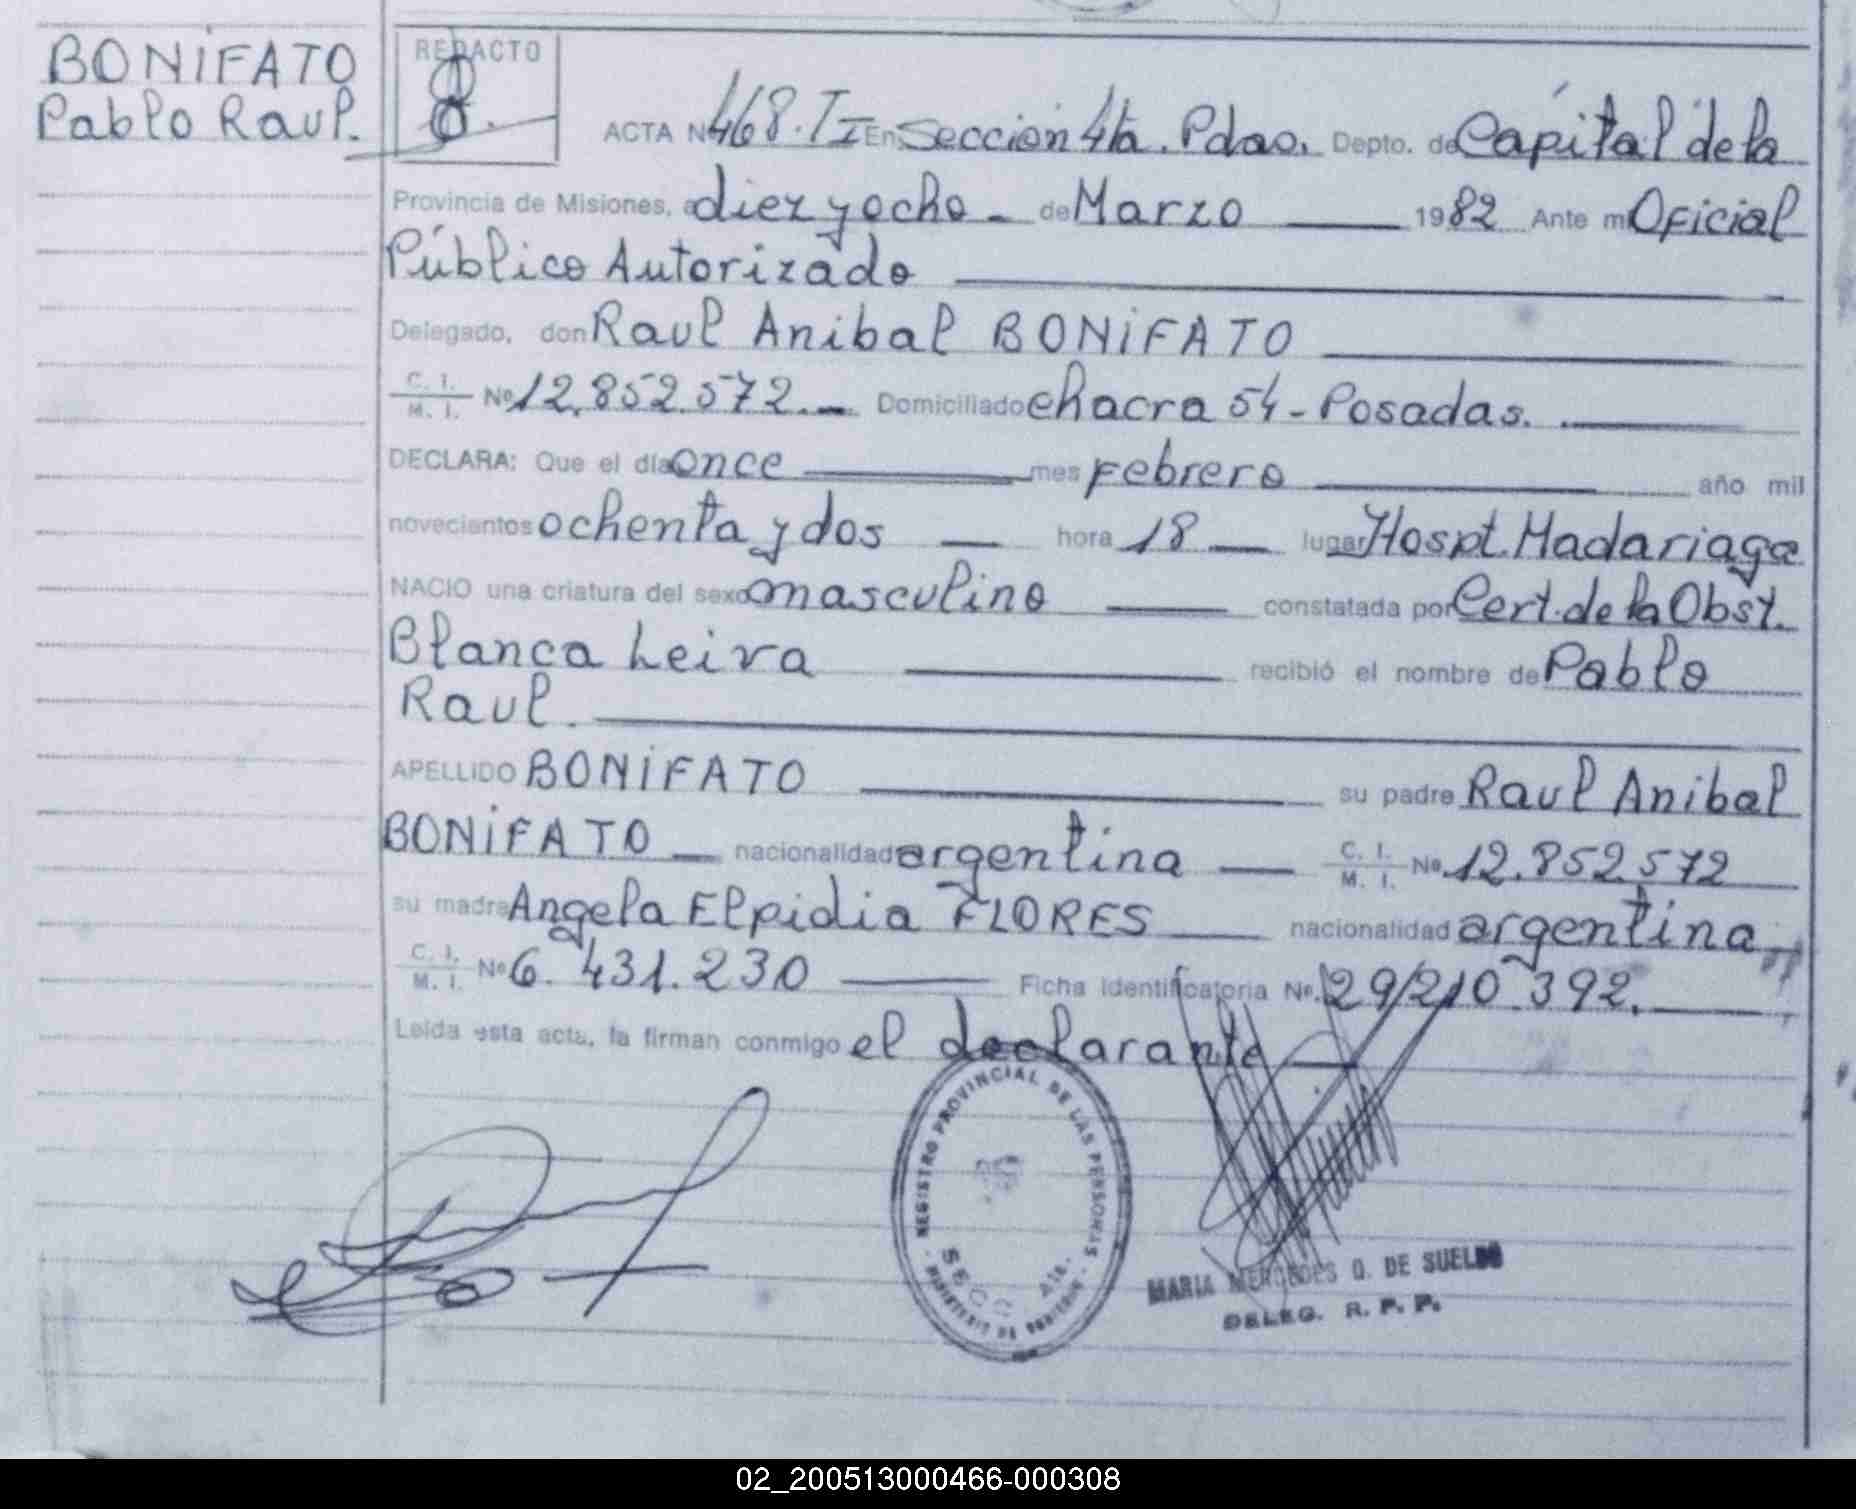 BONIFATO
Pablo Raul.
REDACTO
ACTA Nº 468. T I En Sección 4ta. Pdas. Depto. de Capital de la
Provincia de Misiones, a diez y ocho - de Marzo — 1982 Ante mi Oficial
Público Autorizado —
Delegado, don Raul Anibal BONIFATO —
C. I. / M. I. Nº 12.852.572. — Domiciliado Chacra 54 - Posadas. —
DECLARA: Que el día once — mes Febrero — año mil
novecientos ochenta y dos — hora 18 — lugar Hospt. Madariaga
NACIO una criatura del sexo masculino — constatada por Cert. de la Obst.
Blanca Leiva — recibió el nombre de Pablo
Raul. —
APELLIDO BONIFATO — su padre Raul Anibal
BONIFATO — nacionalidad argentina — C. I. / M. I. Nº 12.852.572
su madre Angela Elpidia FLORES — nacionalidad argentina
C. I. / M. I. Nº 6.431.230 — Ficha Identificatoria Nº 29/210.392. —
Leída esta acta, la firman conmigo el declarante —
REGISTRO PROVINCIAL DE LAS PERSONAS
MINISTERIO DE GOBIERNO
SECC. 4ta.
MARIA MERCEDES Q. DE SUELDO
DELEG. R. P. P.
02_200513000466-000308